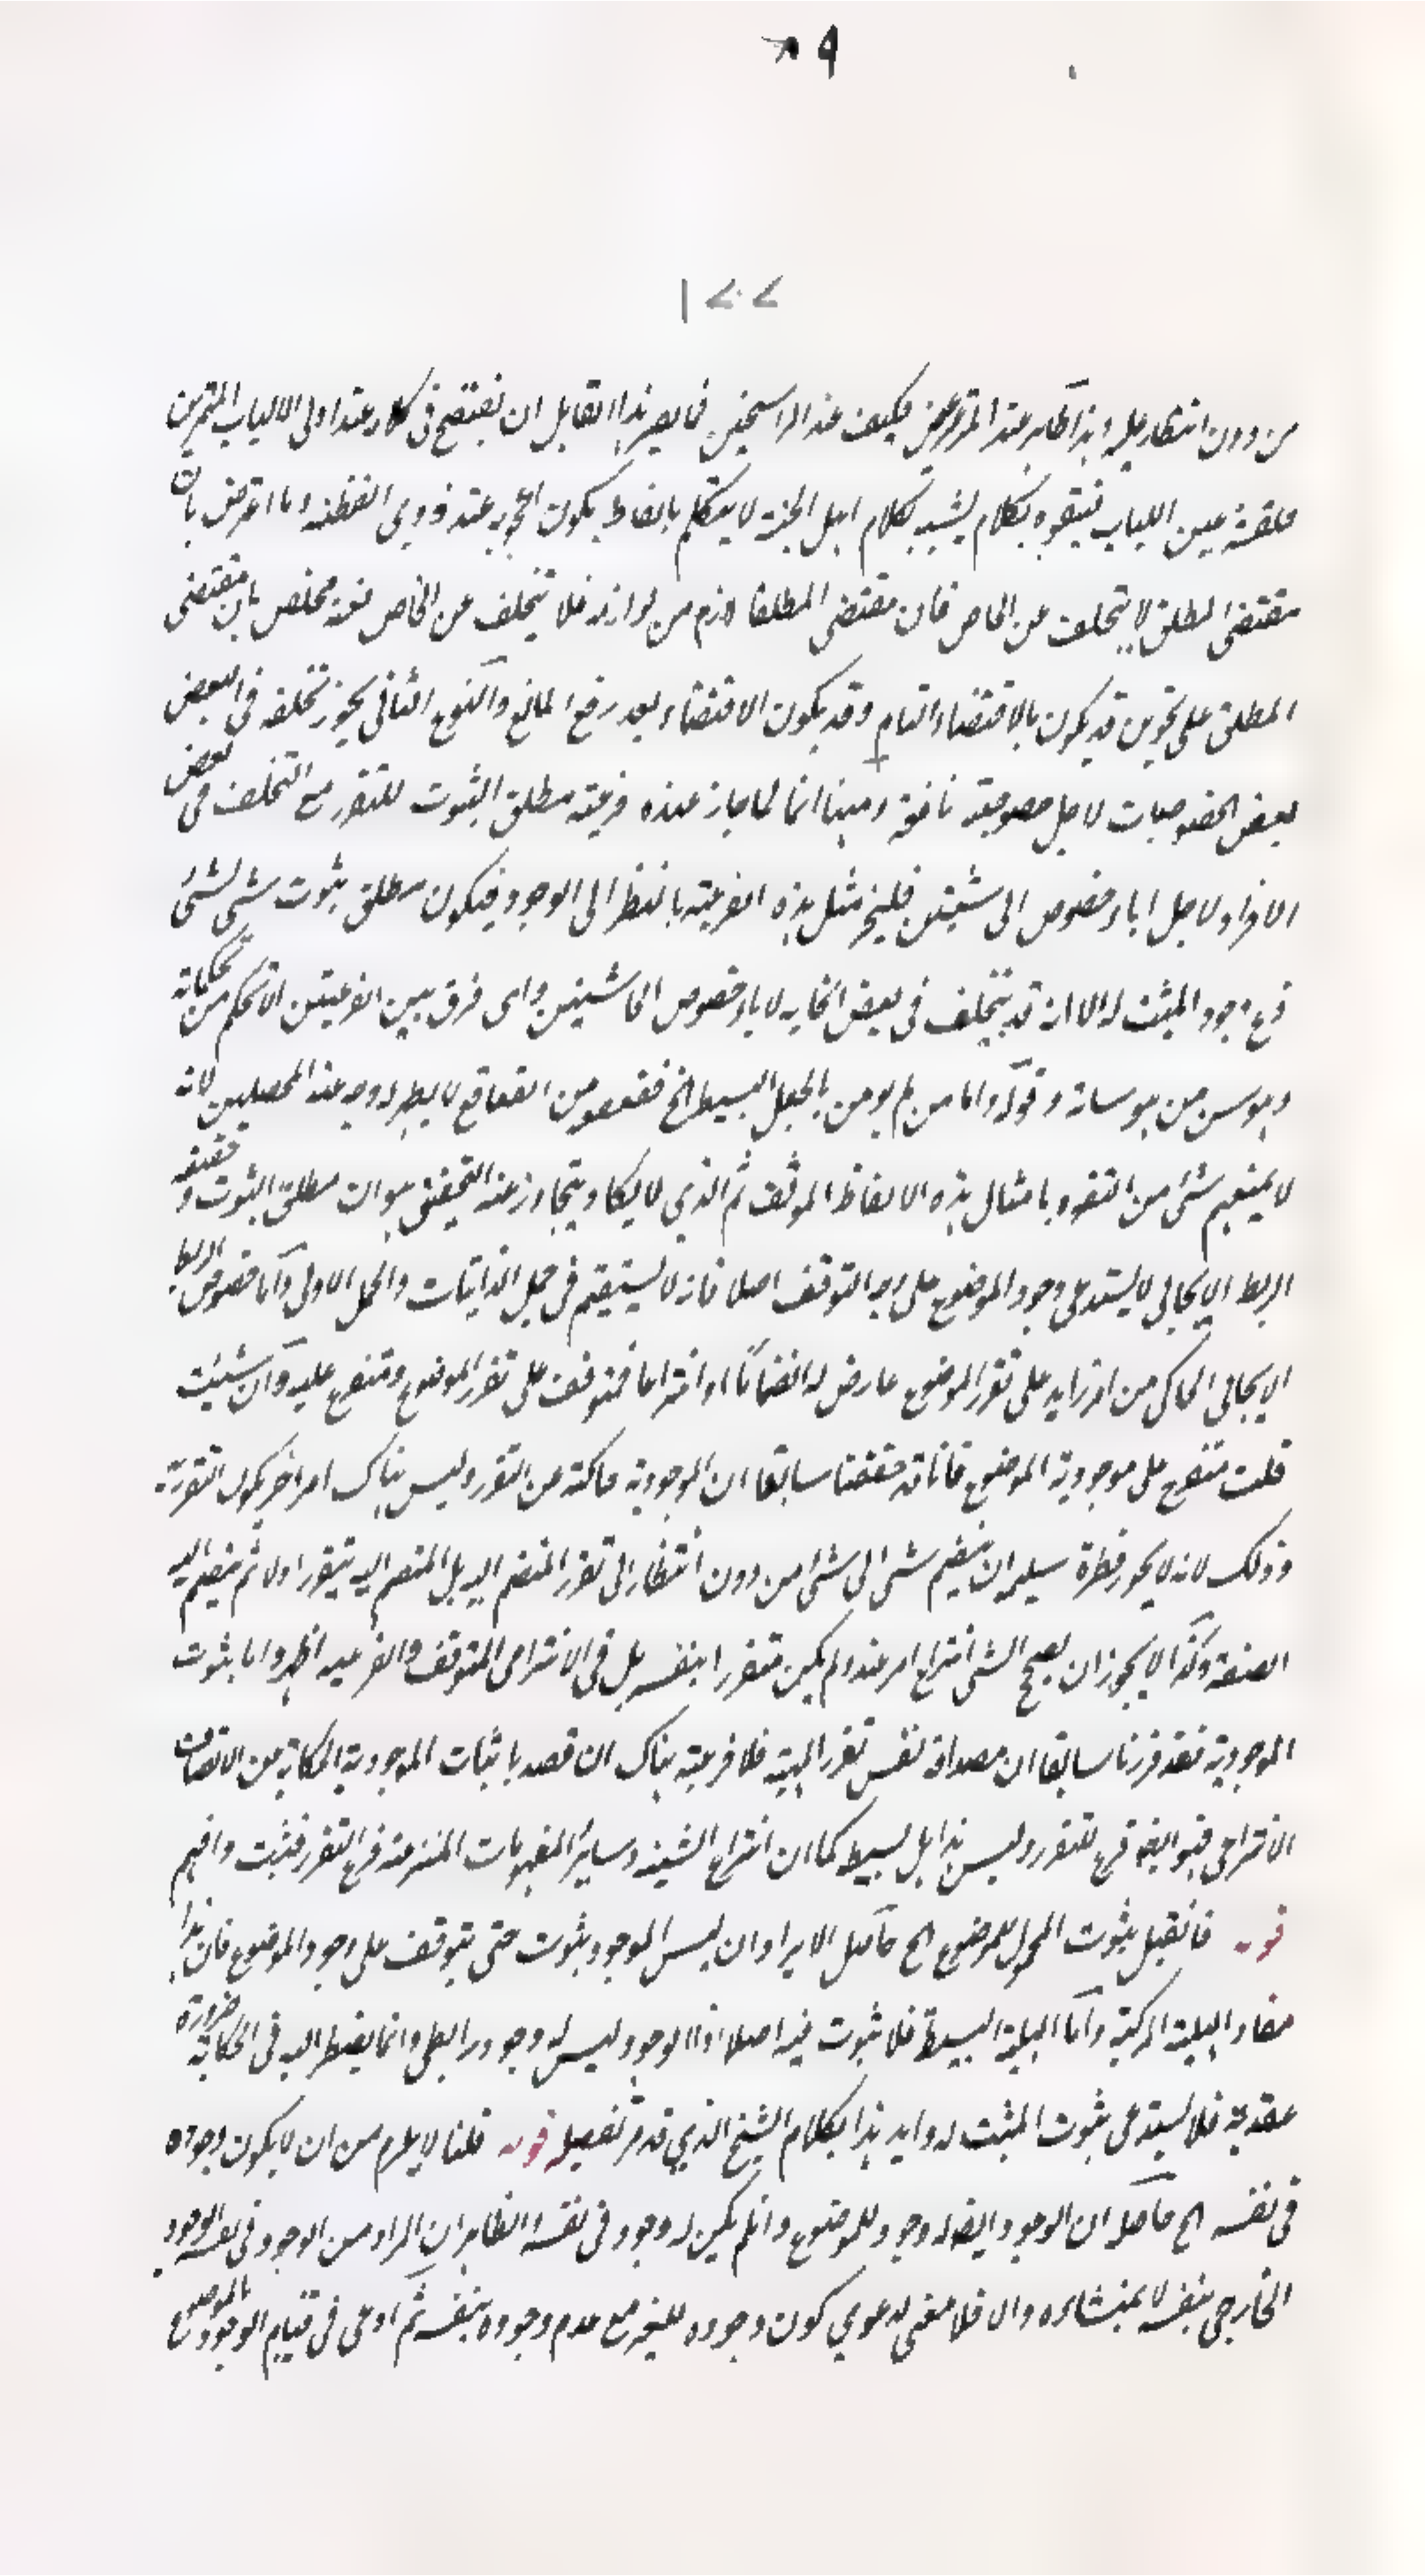 من دون انتظار عليه وهذا ظاهر عند المترعرعين فكيف عند الراسخين فما بصر هذا القايل ان يفتضح في كلامه عند اولى الالباب
عين اللباب فيتفوه بكلام يشبه بكلام اهل الجنة لا يتكلم بالفاظ يكون اعجوبه عند ذوى الفطنه وما اعترض بان
مقتضى المطلق لا يتخلف عن الخاص فان مقتضى المطلق لازم من لوازمه فلا يتخلف عن الخاص فغير مخلص بان مقتضى
المطلق على نحوين قد يكون بالاقتضاء التام وقد يكون الاقتضاء بعد رفع المانع والنوع الثاني يجوز تخلفه في البعض
بعض الخصوصيات لاجل خصوصيته وههنا انما لما جاز عنده فرعية مطلق الثبوت للتقرر مع التخلف في بعض
الافراد لاجل اباء خصوص الى شيتين فليجز مثل هذه الفرعية بالنظر الى الوجود فيكون مطلق ثبوت شى لشئ
فرع وجود المثبت له الا انه قد يتخلف في بعض لاباء خصوص الحاشيتين واى فرق بين الفرعيتين الا تحكم من تحكماته
وهوس من هوساته وقوله واما من لم يومن بالجعل البسيط الخ من القعاقع لا يظهر له وجه عند المحصلين لانه
شئ من التفوه بامثال هذه الالفاظ ثم الذي لا يكاد يتجاوز عنه التحقيق هو ان مطلق الثبوت وحقيقه
الربط الايجابى لا يستدعى وجود الموضوع على وجه التوقف اصلا فانه لا يستقيم في حمل الذاتيات والحمل الاولى واما خصوص الربط
الايجابى الحاكى من امر زايد على تقرر الموضوع عارض له انضماما او انتزاعا فمتوقف على تقرر الموضوع ومتفرع عليه وان شيئت
قلت متفرع على موجودية الموضوع فانا قد حققنا سابقا ان الموجودية حاكية عن التقرر وليس هناك امر اخر يكون
وذلك لانه لا يجوز فطرة سليمه ان ينضم شى الى شى من دون انتظار الى تقرر المنضم اليه بل المنضم اليه يتقرر اولا ثم ينضم اليه
الصفة وكذا لا يجوز ان يصح الشى انتزاع امر عنه ولم يكن متقررا بنفسه بل في الانتزاعى التوقف والفرعيه اظهر واما ثبوت
الموجودية فقد قررنا سابقا ان مصداقه نفس تقرر المهية فلا فرعية هناك ان قصد باثبات الموجودية الحكاية من الاتصاف
الانتزاعى فهو ايضا فرع للتقرر وليس هذا هل بسيط كما ان انتزاع الشيئه وساير المفهومات المنتزعة فرع التقرر فتثبت وافهم
قوله فانقيل ثبوت المحمول للموضوع الخ حاصل الايراد ان ليس الموجود بثبوت حتى يتوقف على وجود الموضوع فان هذا
مفاد الهلية المركبة واما الهلية البسيطة فلا ثبوت فيه اصلا اذ الوجود ليس له وجود رابطى وانما يضطر اليه في الحكاية ضرورة
عقديه فلا يستدعى ثبوت المثبت له وايد هذا بكلام الشيخ الذي قد مر تفصيله قوله قلنا لا يلزم من ان لا يكون وجوده
في نفسه الخ حاصله ان الوجود ايضا له وجود للموضوع وان لم يكن له وجود في نفسه الظاهر ان المراد من الوجود في نفسه الوجود
الخارجى بنفسه لا بمنشائه والا فلا معنى لدعوى كون وجوده للغير مع عدم وجوده بنفسه ثم ادعى في قيام الوجود بالموضوع